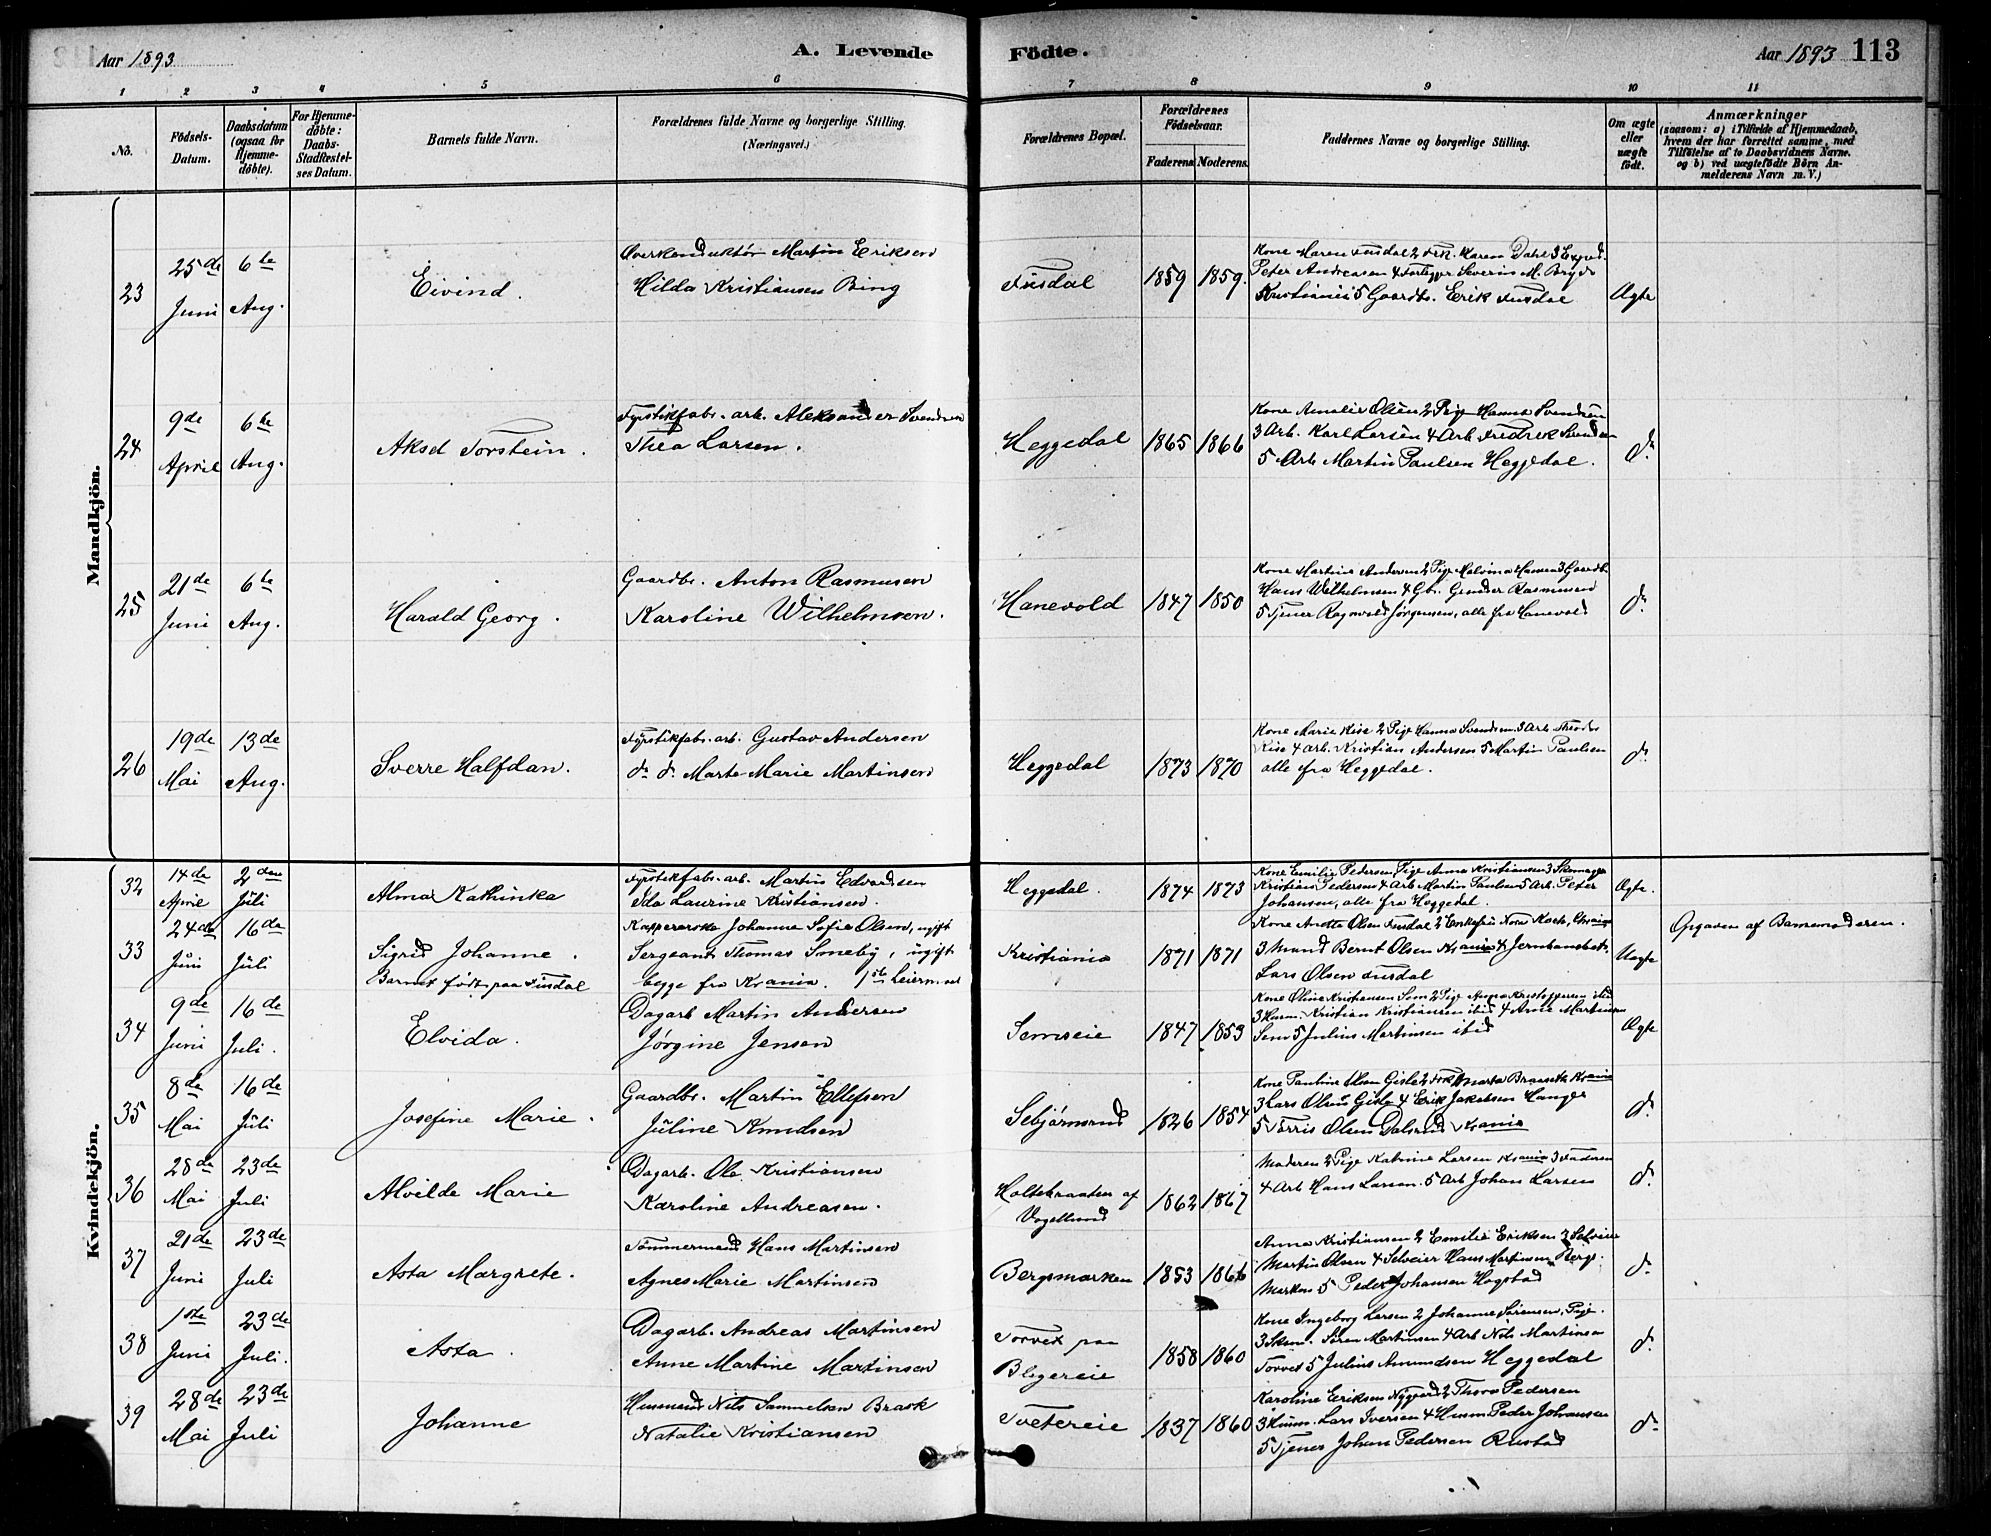 Aar 1893
A. Levende
Födte.
Aar 1893
113
1 2 3 4 5 6 7 8 9 10 11
No.
Födsels-
Datum.
Daabsdatum
(ogsaa for
Hjemme-
døbte).
For Hjemme-
døbte:
Daabs-
Stadfæstel-
ses Datum.
Barnets fulde Navn.
Forældrenes fulde Navne og borgerlige Stilling.
(Næringsvei.)
Forældrenes Bopæl.
Forældrenes
Födselsaar.
Faderens
Moderens.
Faddernes Navne og borgerlige Stilling.
Om ægte
eller
uægte
födt.
Anmærkninger
(saasom: a) i Tilfælde af Hjemmedaab,
hvem der har forrettet samme, med
Tilføielse af to Daabsvidners Navne.
og b) ved uægtefödte Börn An-
melderens Navn m. V.)
Mandkjön.
23
25de
Juni
6te
Aug.
Eivind.
Overkonduktör Martin Eriksen
Hilda Kristiansen Bing
Fusdal
1859
1859.
Kone Maren Fusdal 2 Frk. Karen Dahl 3 Exped.
Peter Andreasen 4 Severin M.
Kristiania 5 Gaardbr. Erik Fusdal
Ægte
24
9de
April
6te
Aug.
Aksel Torstein.
Fyrstikfabr. arb. Aleksander Svendsen
Thea Larsen.
Heggedal
1865
1866
Kone Amalie Olsen 2 Pige Hanna Svendsen
3 Arb. Karl Larsen 4 Arb Fredrik Svendsen
5 Arb Martin Paulsen Heggedal.
do
25
21de
Juni
6te
Aug.
Harald Georg.
Gaardbr. Anton Rasmusen
Karoline Wilhelmsen.
Hanevold
1847
1850
Kone Martine Andersen 2 Pige Malvina Hansen 3 Gaardbr.
Hans Wilhelmsen 4 Gbr. Gunder Rasmusen
5 Tjener Ragnvald Jörgensen, alle fra Hanevold
do
26
19de
Mai
13de
Aug.
Sverre Halfdan.
Fyrstikfabr. arb. Gustav Andersen
do do Marte Marie Martinsen
Heggedal
1873
1870
Kone Marie Kise 2 Pige Hanna Svendsen 3 Arb Theodor
Kise 4 Arb. Kristian Andersen 5 Martin Paulsen
alle fra Heggedal.
do
Kvindekjön.
32
14de
April
2den
Juli
Alma Kathinka
Fyrstikfabr. arb. Martin Edvardsen
Ida Laurine Kristiansen.
Heggedal.
1874
1873
Kone Emilie Pedersen, Pige Anna Kristiansen 3 Skomager
Kristian Pedersen 4 Arb Martin Paulsen 5 Arb. Peter
Johansen, alle fra Heggedal.
Ægte.
33
24de
Juni
16de
Juli
Sigrid Johanne.
Barnet født paa Fusdal
Johanne Sofie Olsen, ugift
Sergeant Thomas Soneby, ugift
begge fra Krania. 1ste Leiermaal
Kristiania
1871
1871
Kone Anette Olsen Fusdal 2 Enkefru
3 Mand Bernt Olsen Krania 4 Jernbanebet.
Lars Olsen Fusdal
Uægte
Opgaven af Barnemoderen.
34
9de
Juni
16de
Juli.
Elvida.
Dagarb Martin Andersen
Jørgine Jensen
Semseie
1847
1853
Kone Oline Kristiansen Sem 2 Pige Anna Kristoffersen ibid
3 Husm. Kristian Kristiansen ibid 4 Arne Martinsen
Sem 5 Julius Martinsen ibid
Ægte
35
8de
Mai
16de
Juli
Josefine Marie.
Gaardbr. Martin Ellefsen
Juline Knudsen
Sebjörnsrud
1826
1854
Kone Pauline Olsen Gisle 2 Frk Marta Krania
3 Lars Olsen Gisle 4 Erik Jakobsen Hanger
5 Torris Olsen Dalsrud Krania
do
36
28de
Mai
23de
Juli
Alvilde Marie
Dagarb. Ole Kristiansen
Karoline Andreasen.
Holtebraaten af
Vogellund
1862
1867
Moderen 2 Pige Katrine Larsen Krania 3 Faderen
4 Arb Hans Larsen. 5 Arb Johan Larsen
do
37
21de
Juni
23de
Juli
Asta Margrete.
Tömmermand Hans Martinsen
Agnes Marie Martinsen
Bergsmarken
1853
1866
Anna Kristiansen 2 Emilie Eriksen 3 Selveier
Martin Olsen 4 Selveier Hans Martinsen Bergs-
marken 5 Peder Johansen Hogstad
do
38
1ste
Juni
23de
Juli.
Asta.
Dagarb. Andreas Martinsen
Anne Martine Martinsen
Torvet paa
Bligereie
1858
1860
Kone Ingeborg Larsen 2 Johanne Sörensen, Pige.
3 Skom. Sören Martinsen 4 Arb Nils Martinsen
Torvet 5 Julius Amundsen Heggedal
do
39
28de
Mai
23de
Juli
Johanne
Husmand Nils Sammelsen Brask
Natalie Kristiansen
Tvetereie
1837
1860
Karoline Eriksen Nygaard 2 Thora Pedersen
3 Husm. Lars Iversen 4 Husm Peder Johansen
5 Tjener Johan Pedersen Rustad
do